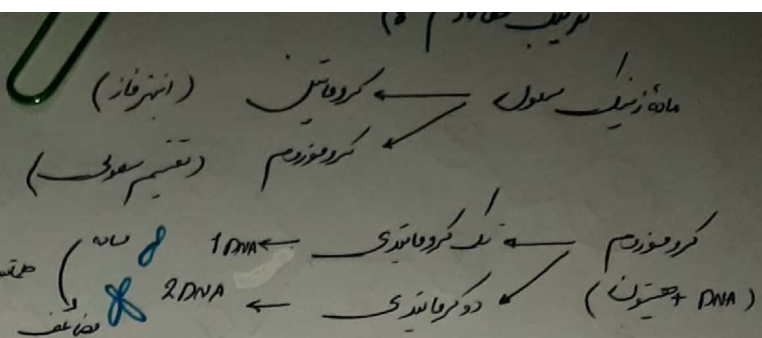 مادهٔ ژنتیک سلول ← کروماتین (اینترفاز)
← کروموزوم (تقسیم سلولی)
کروموزوم ← تک کروماتیدی ← 1 DNA ساده
(DNA + هیستون) ← دو کروماتیدی ← 2 DNA مضاعف